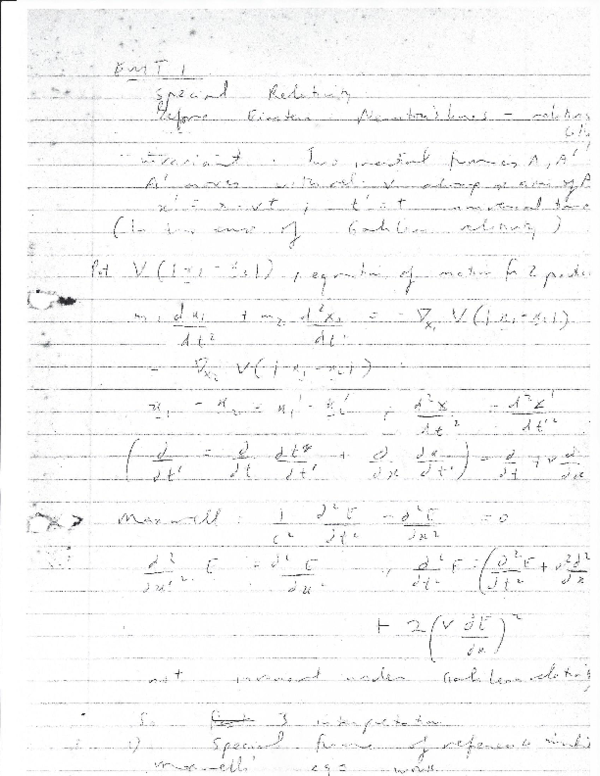 EMT 1
Special Relativity
Before Einstein Newton's laws -
invariant. Two inertial frames A, A'
A' moves with vel. v along x axis of A
x' = x - vt ; t' = t universal time
(In the sense of Galilean relativity)
Pot V(|x₁ - x₂|), equation of motion for 2
m₁ d x₁/dt² + m₂ d²x₂/dt² = - ∇x₁ V(|x₁ - x₂|)
- ∇x₂ V(|x₁ - x₂|)
x₁ - x₂ = x₁' - x₂' ; d²x/dt² = d²x'/dt'²
(d/dt' = d/dt dt/dt' + d/dx dx/dt') = d/dt + v d/dx
Maxwell: 1/c² d²E/dt² - d²E/dx² = 0
d²/dx'² E = d²E/dx² ; d²/dt'² E = (d²E/dt² + v²d²/dx
+ 2(v dE/dx)²
not invariant under Galilean
So 3 interpretation
i) Special frame of reference
Maxwell's eqs work